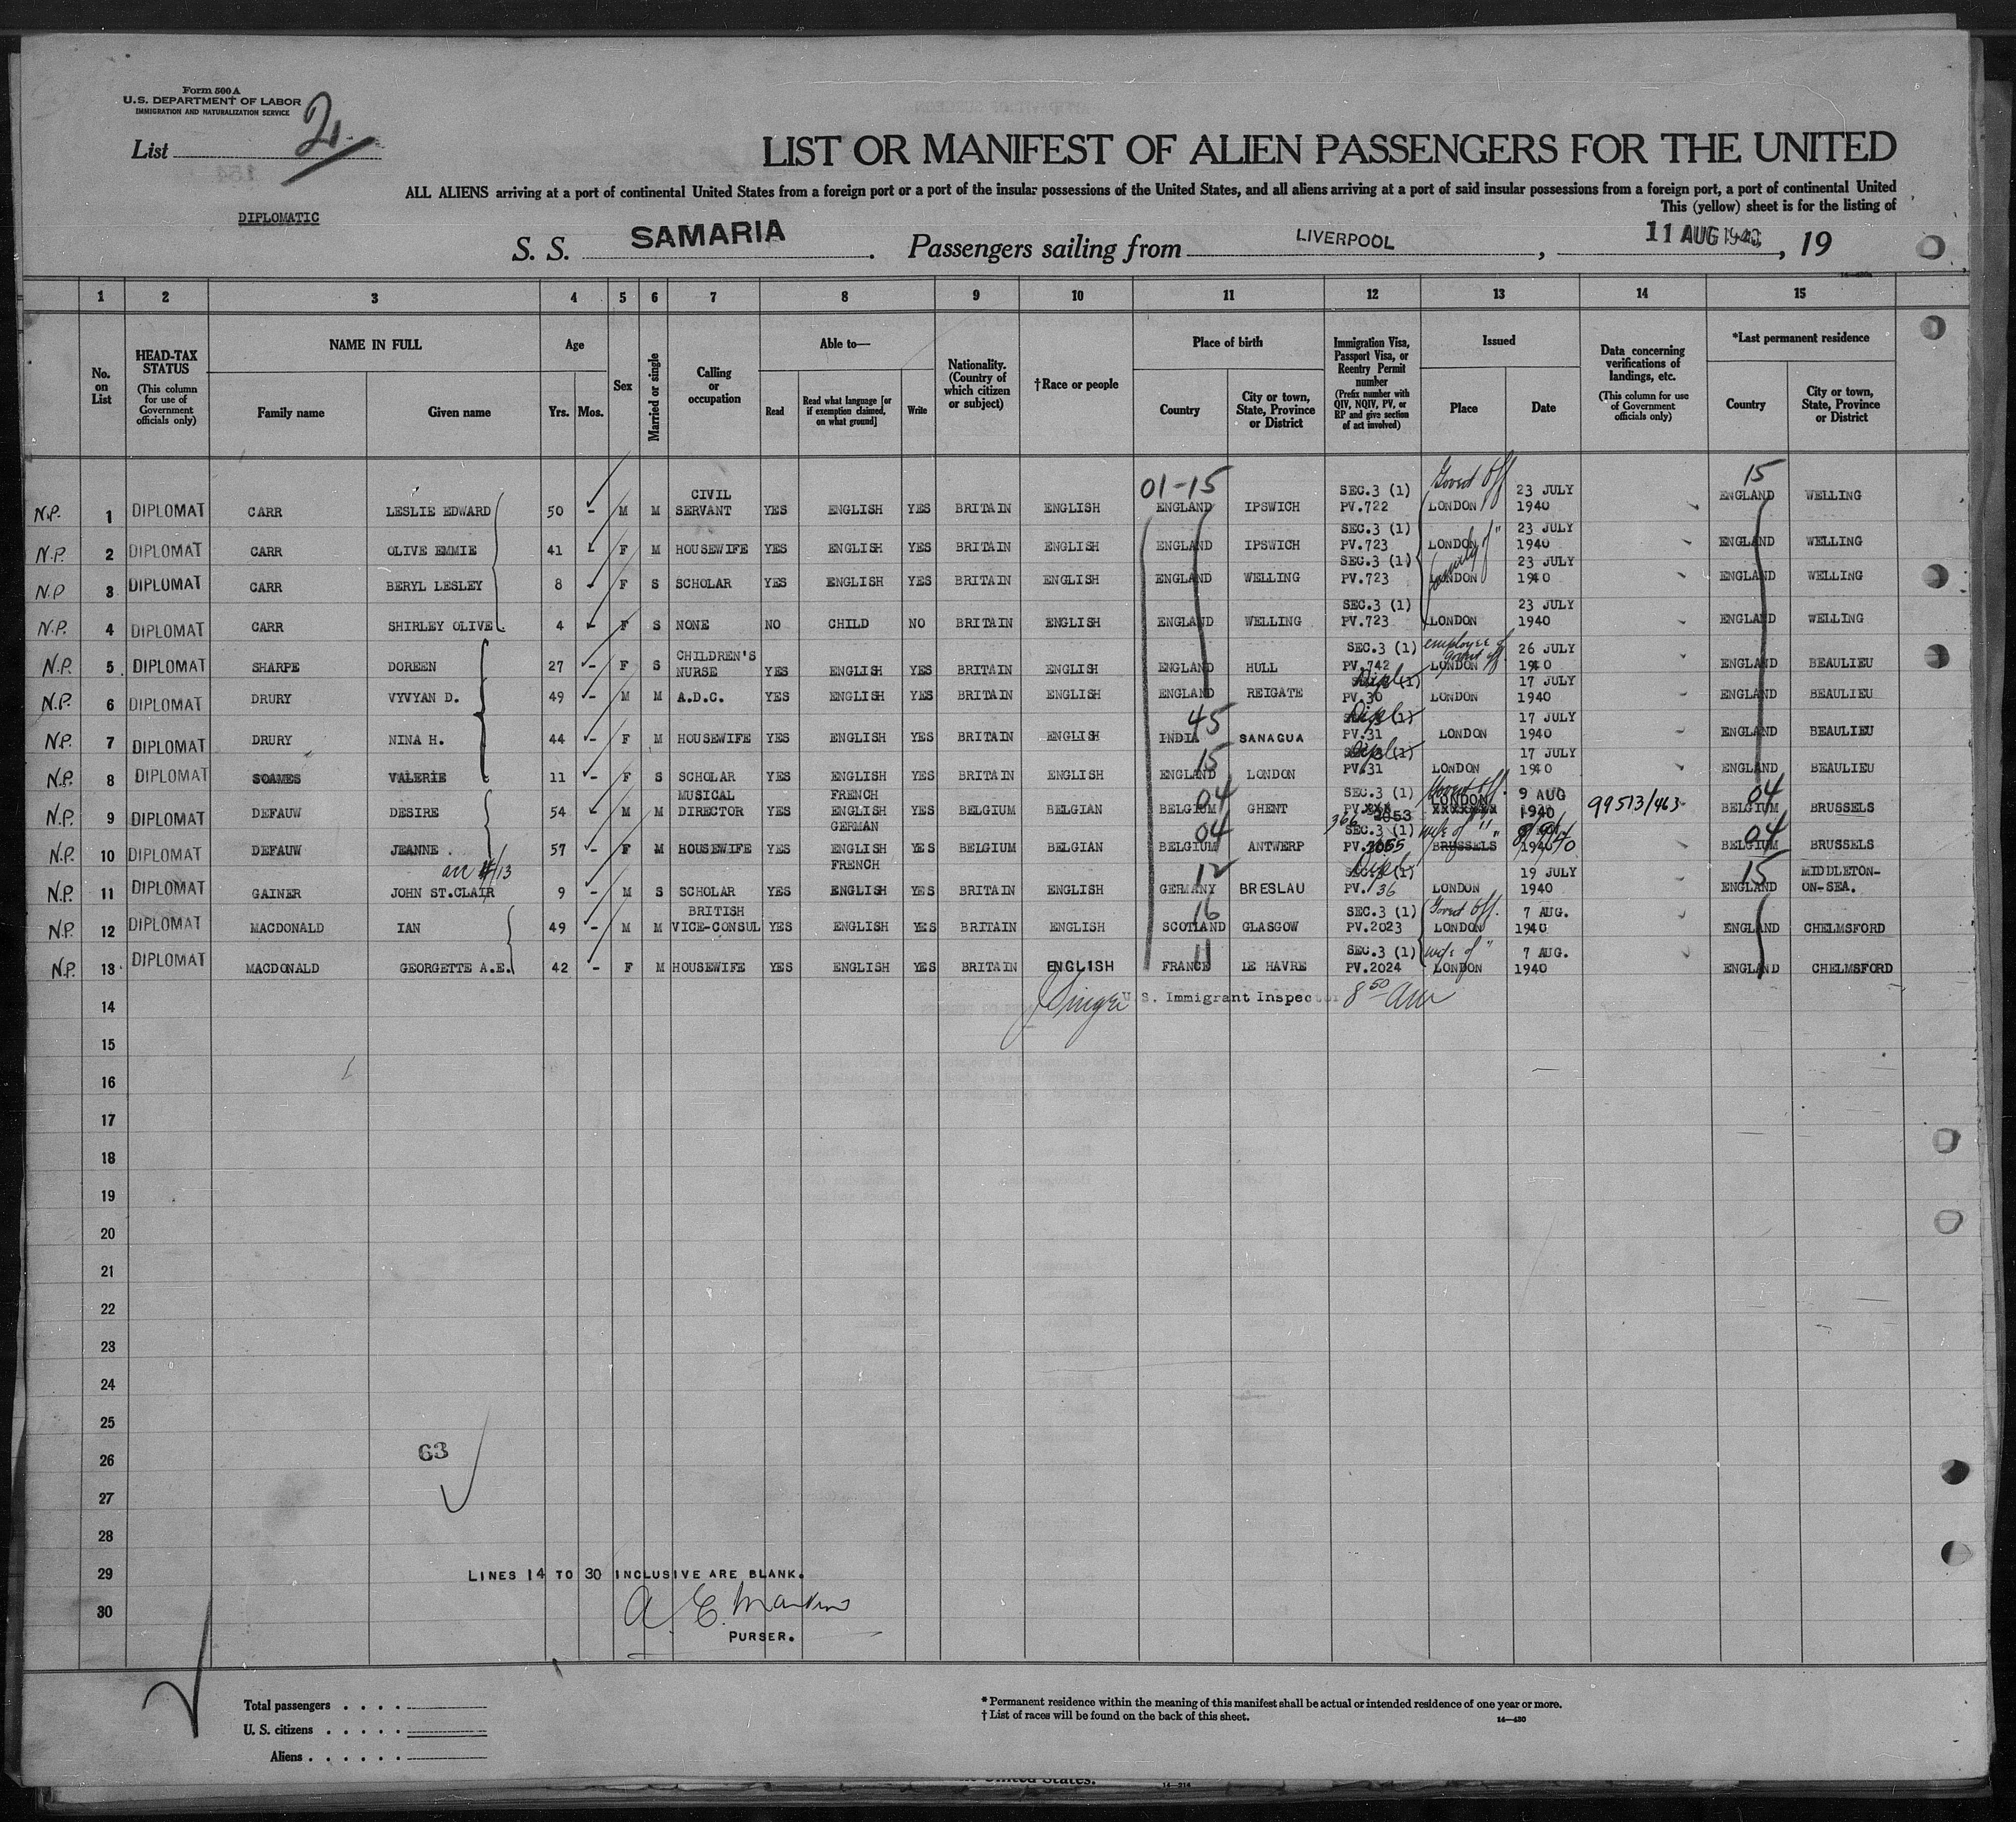 Form 500 A
U.S. DEPARTMENT OF LABOR
IMMIGRATION AND NATURALIZATION SERVICE
List 2
LIST OR MANIFEST OF ALIEN PASSENGERS FOR THE UNITED
ALL ALIENS arriving at a port of continental United States from a foreign port or a port of the insular possessions of the United States, and all aliens arriving at a port of said insular possessions from a foreign port, a port of continental United
This (yellow) sheet is for the listing of
DIPLOMATIC
S. S. SAMARIA. Passengers sailing from LIVERPOOL, 11 AUG 1940, 19
1 2 3 4 5 6 7 8 9 10 11 12 13 14 15
No. on List
HEAD-TAX STATUS (This column for use of Government officials only)
NAME IN FULL
Family name Given name
Age
Yrs. Mos.
Sex
Married or single
Calling or occupation
Able to—
Read
Read what language [or if exemption claimed, on what ground]
Write
Nationality. (Country of which citizen or subject)
†Race or people
Place of birth
Country
City or town, State, Province or District
Immigration Visa, Passport Visa, or Reentry Permit number (Prefix number with QIV, NQIV, PV, or RP and give section of act involved)
Issued
Place Date
Data concerning verifications of landings, etc. (This column for use of Government officials only)
*Last permanent residence
Country
City or town, State, Province or District
01-15 Govt Off 15
N.P. 1 DIPLOMAT CARR LESLIE EDWARD 50 - M M CIVIL SERVANT YES ENGLISH YES BRITAIN ENGLISH ENGLAND IPSWICH SEC.3 (1) PV.722 LONDON 23 JULY 1940 ENGLAND WELLING
N.P. 2 DIPLOMAT CARR OLIVE EMMIE 41 - F M HOUSEWIFE YES ENGLISH YES BRITAIN ENGLISH ENGLAND IPSWICH SEC.3 (1) PV.723 LONDON 23 JULY 1940 ENGLAND WELLING
N.P 3 DIPLOMAT CARR BERYL LESLEY 8 F S SCHOLAR YES ENGLISH YES BRITAIN ENGLISH ENGLAND WELLING SEC.3 (1) PV.723 family of " LONDON 23 JULY 1940 ENGLAND WELLING
N.P. 4 DIPLOMAT CARR SHIRLEY OLIVE 4 - F S NONE NO CHILD NO BRITAIN ENGLISH ENGLAND WELLING SEC.3 (1) PV.723 LONDON 23 JULY 1940 ENGLAND WELLING
N.P. 5 DIPLOMAT SHARPE DOREEN 27 - F S CHILDREN'S NURSE YES ENGLISH YES BRITAIN ENGLISH ENGLAND HULL SEC.3 (1) PV.742 employee of govt off LONDON 26 JULY 1940 ENGLAND BEAULIEU
N.P. 6 DIPLOMAT DRURY VYVYAN D. 49 - M M A.D.C. YES ENGLISH YES BRITAIN ENGLISH ENGLAND REIGATE Dipl PV.30 LONDON 17 JULY 1940 ENGLAND BEAULIEU
N.P. 7 DIPLOMAT DRURY NINA H. 44 - F M HOUSEWIFE YES ENGLISH YES BRITAIN ENGLISH 45 INDIA SANAGUA Dipl PV.31 LONDON 17 JULY 1940 ENGLAND BEAULIEU
N.P. 8 DIPLOMAT SOAMES VALERIE 11 - F S SCHOLAR YES ENGLISH YES BRITAIN ENGLISH 15 ENGLAND LONDON Dipl PV.31 LONDON 17 JULY 1940 ENGLAND BEAULIEU
N.P. 9 DIPLOMAT DEFAUW DESIRE 54 - M M MUSICAL DIRECTOR YES FRENCH ENGLISH GERMAN YES BELGIUM BELGIAN 04 BELGIUM GHENT SEC.3 (1) PV. 2053 366 Govt off. LONDON 9 AUG 1940 99513/463 04 BELGIUM BRUSSELS
N.P. 10 DIPLOMAT DEFAUW JEANNE 57 - F M HOUSEWIFE YES ENGLISH FRENCH YES BELGIUM BELGIAN 04 BELGIUM ANTWERP SEC.3 (1) PV. wife of " " BRUSSELS 1940 04 BELGIUM BRUSSELS
N.P. 11 DIPLOMAT GAINER JOHN ST.CLAIR 9 - M S SCHOLAR YES ENGLISH YES BRITAIN ENGLISH 12 GERMANY BRESLAU Dipl PV. 136 LONDON 19 JULY 1940 15 ENGLAND MIDDLETON-ON-SEA.
N.P. 12 DIPLOMAT MACDONALD IAN 49 - M M BRITISH VICE-CONSUL YES ENGLISH YES BRITAIN ENGLISH 16 SCOTLAND GLASGOW SEC.3 (1) PV.2023 Govt Off. LONDON 7 AUG. 1940 ENGLAND CHELMSFORD
N.P. 13 DIPLOMAT MACDONALD GEORGETTE A.E. 42 - F M HOUSEWIFE YES ENGLISH YES BRITAIN ENGLISH 11 FRANCE LE HAVRE SEC.3 (1) PV.2024 wife of " LONDON 7 AUG. 1940 ENGLAND CHELMSFORD
14 U.S. Immigrant Inspector 8 50 AM
15
16
17
18
19
20
21
22
23
24
25
26 63
27
28
29 LINES 14 TO 30 INCLUSIVE ARE BLANK.
30
PURSER.
Total passengers . . . .
U. S. citizens . . . . .
Aliens . . . . . .
* Permanent residence within the meaning of this manifest shall be actual or intended residence of one year or more.
† List of races will be found on the back of this sheet.
14—430
United States.
14—214